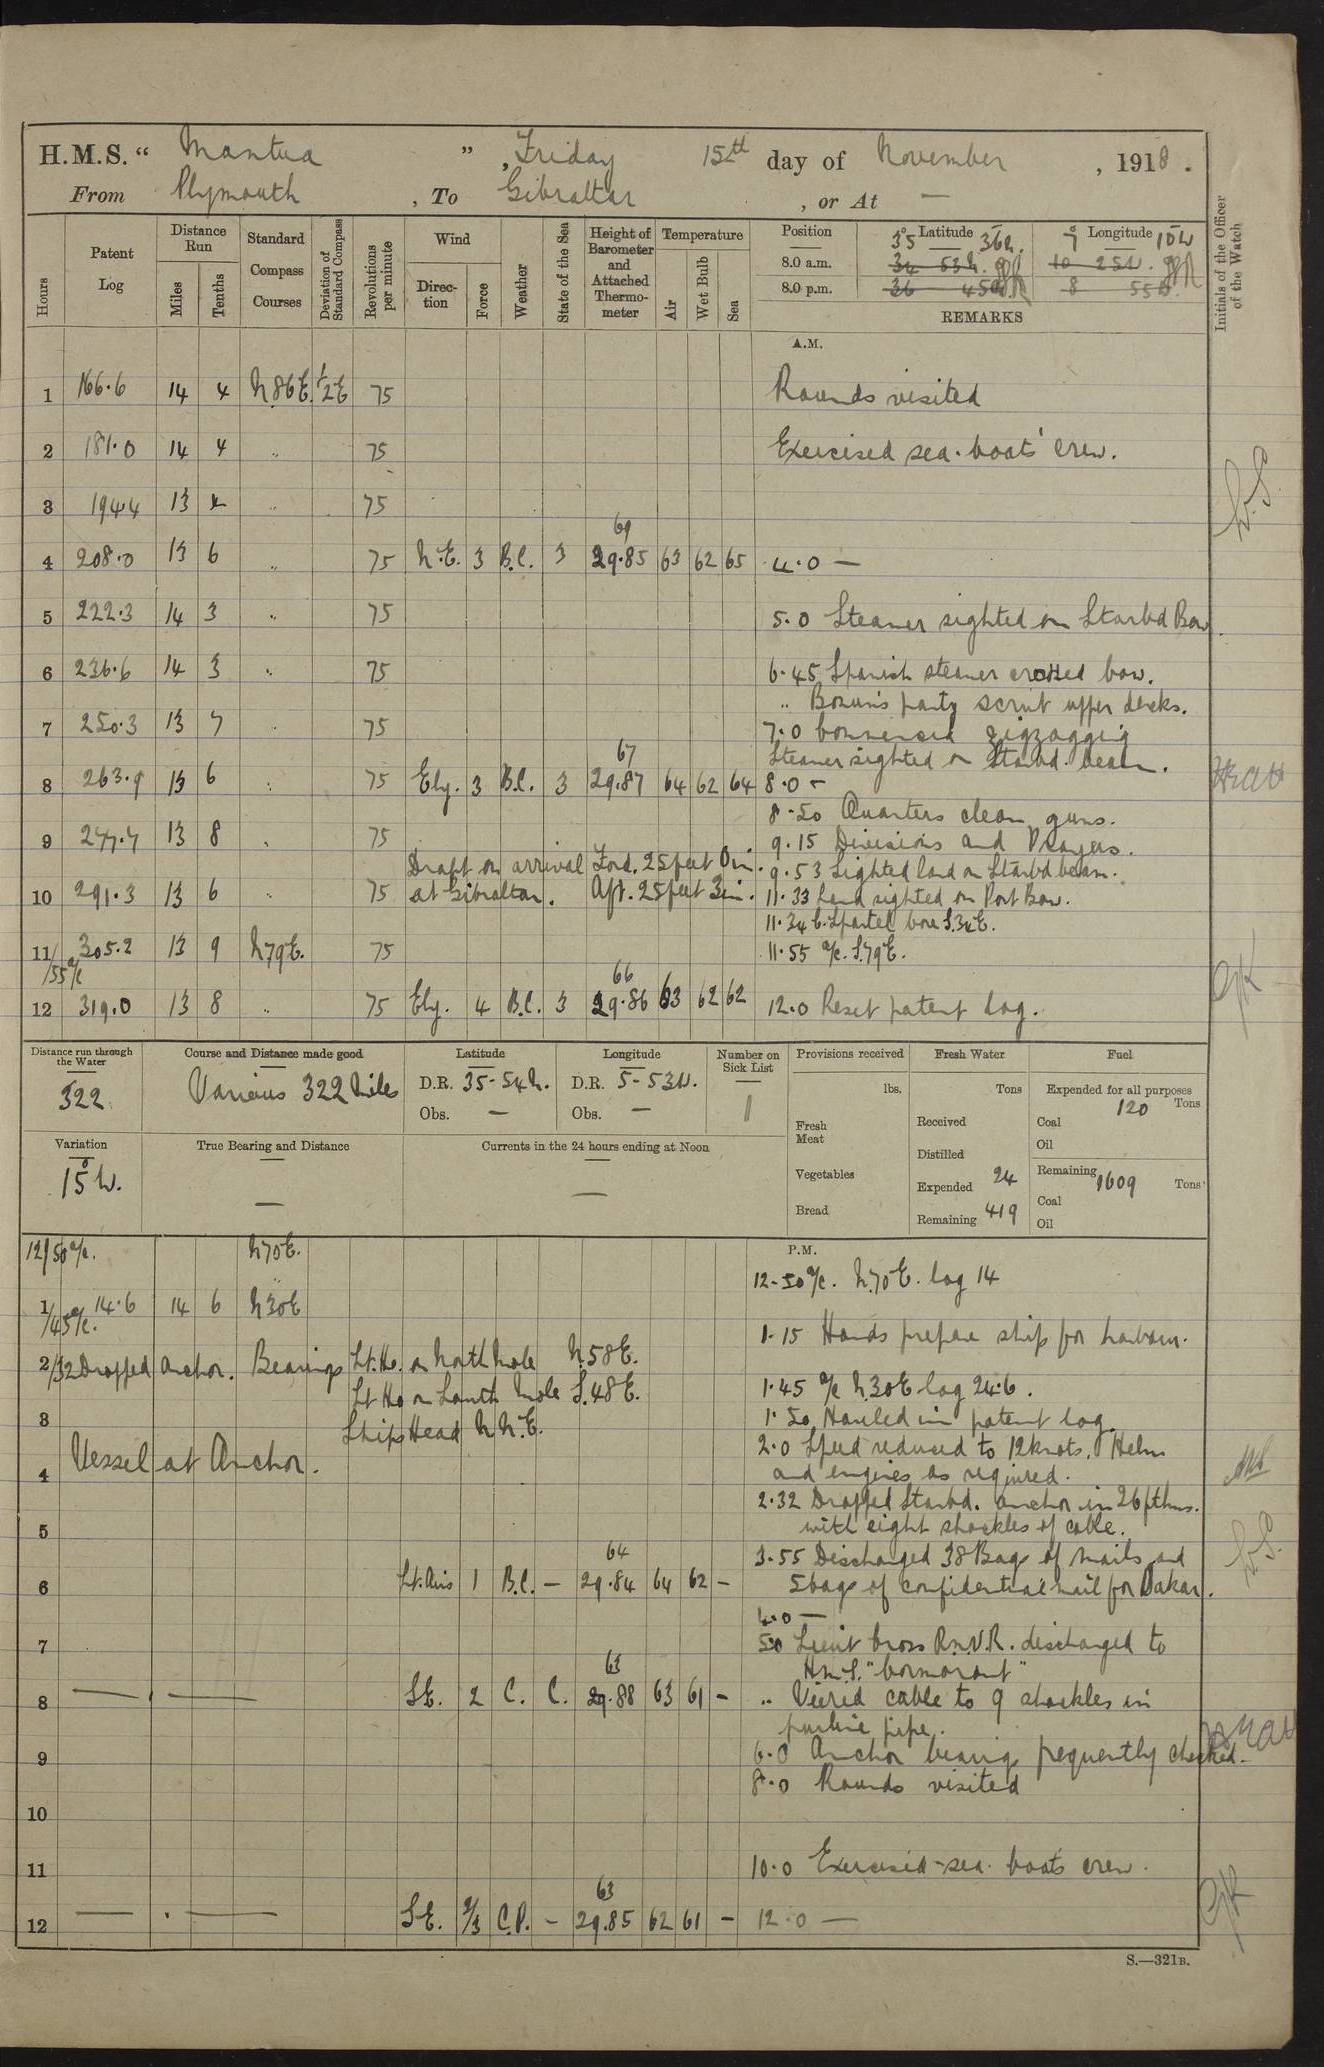 H.M.S. “ Mantua ” , Friday 15th day of November , 1918 .
From Plymouth , To Gibraltar , or At —
Hours
Patent Log
Distance Run
Miles
Tenths
Standard Compass Courses
Deviation of Standard Compass
Revolutions per minute
Wind
Direction
Force
Weather
State of the Sea
Height of Barometer and Attached Thermometer
Temperature
Air
Wet Bulb
Sea
Position
Latitude
Longitude
35° 36 N. 7° 10 W
8.0 a.m. 34 53 N. 10 25 W.
8.0 p.m. 36 8 55
REMARKS
Initials of the Officer of the Watch
A.M.
1 166.6 14 4 N 86 E. ½ E 75 Rounds visited
2 181.0 14 4 .. 75 Exercised sea-boats' crew.
3 194.4 13 4 .. 75
69
4 208.0 13 6 .. 75 N.E. 3 B.C. 3 29.85 63 62 65 4.0 —
5 222.3 14 3 .. 75 5.0 Steamer sighted on Starbd Bow.
6 236.6 14 3 .. 75 6.45 Spanish steamer crossed bow.
.. Bosun's party scrub upper decks.
7 250.3 13 7 . 75 7.0 Commenced zigzaggig
67 Steamer sighted on Starbd. beam.
8 263.9 13 6 .. 75 Ely. 3 B.C. 3 29.87 64 62 64 8.0 -
8.50 Quarters clean guns.
9 277.7 13 8 . 75 9.15 Divisions and Prayers.
Draft on arrival Ford. 25 feet 0 in. 9.53 Sighted land on Starbd beam.
10 291.3 13 6 75 at Gibraltar. Aft. 25 feet 3 in. 11.33 Land sighted on Port Bow.
11.34 C. Spartel bore S.34E.
11 305.2 13 9 N79E. 75 11.55 a/c. S.79E.
/55 a/c 66
12 319.0 13 8 .. 75 Ely. 4 B.C. 3 29.86 63 62 62 12.0 Reset patent log.
Distance run through the Water
322
Course and Distance made good
Various 322 Miles
Latitude
D.R. 35-54N.
Obs. —
Longitude
D.R. 5-53W.
Obs. —
Number on Sick List
1
Provisions received
lbs.
Fresh Meat
Vegetables
Bread
Fresh Water
Tons
Received
Distilled
Expended 24
Remaining 419
Fuel
Expended for all purposes
120 Tons
Coal
Oil
Remaining 1609 Tons
Coal
Oil
Variation
15° W.
True Bearing and Distance
—
Currents in the 24 hours ending at Noon
—
P.M.
12/50 a/c. N70E.
12-50 a/c. N.70E. log 14
1 14.6 14 6 N30E
/45 a/c.
1.15 Hands prepare ship for harbour.
2/32 Dropped anchor. Bearings Lt. Ho. on North Mole N.58E.
Lt Ho on South Mole S.48E. 1.45 a/c N.30E log 24.6.
3 Ships Head N.N.E. 1.50 Hauled in patent log.
4 Vessel at Anchor. 2.0 Speed reduced to 12 knots. Helm
and engines as required.
2.32 Dropped Starbd. anchor in 26 fthms.
5 with eight shackles of cable.
64 3.55 Discharged 38 Bags of mails and
6 Lt. Airs 1 B.C. — 29.84 64 62 - 5 bags of confidential mail for Dakar.
4.0 —
7 5.0 Lieut Cross R.N.V.R. discharged to
63 H.M.S. "Cormorant"
8 — S.E. 2 C. C. 29.88 63 61 - .. Veered cable to 9 shackles in
pipe.
9 6.0 Anchor bearings frequently checked.
8.0 Rounds visited
10
11 10.0 Exercised sea-boats crew.
63
12 — S.E. 2/3 C.P. - 29.85 62 61 - 12.0 —
S.—321B.